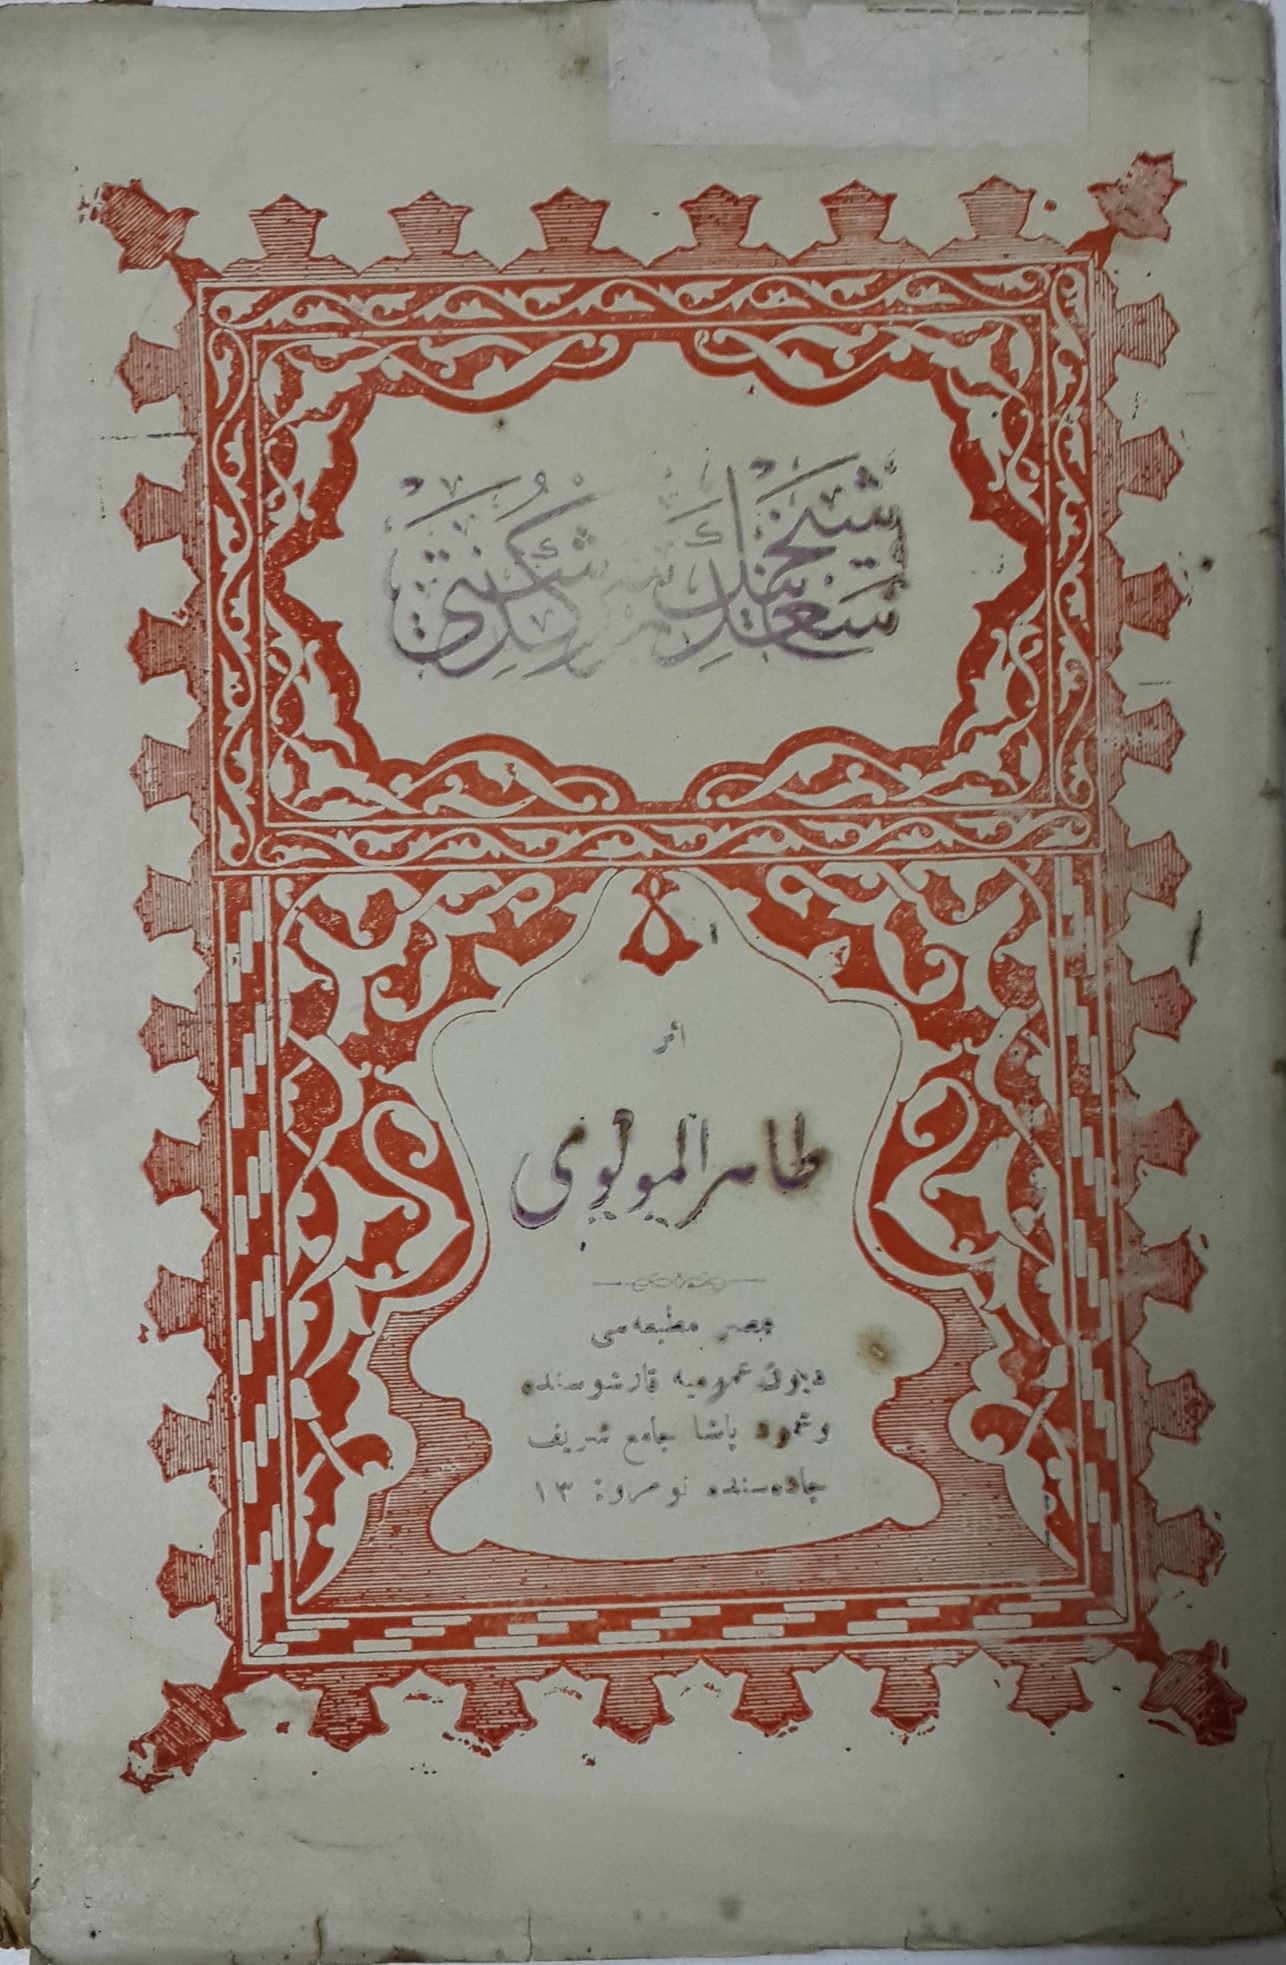 شیخ سعدینك بر سرگذشتی
اثر
طاهر المولوی
عصر مطبعه‌سی
دیون عمومیه قارشوسنده
و محمود پاشا جامع شریف
جاده‌سنده نومرو: ١٣